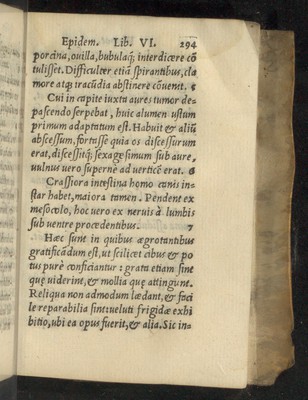 Epidem. Lib. VI. 294
porcina, ouilla, bubulaq́; interdicere cō
tulisset. Difficulter etiā spirantibus, cla
more atq; iracūdia abstinere cōuenit. 5
Cui in capite iuxta aures tumor de-
pascendo serpebat, huic alumen ustum
primum adaptatum est. Habuit & aliū
abscessum, fortasse quia os discessurum
erat, discessitq́; sexagesimum sub aure,
uulnus uero superne ad uerticē erat. 6
Crassiora intestina homo canis in-
star habet, maiora tamen. Pendent ex
mesocolo, hoc uero ex neruis à lumbis
sub uentre procedentibus. 7
Hæc sunt in quibus ægrotantibus
gratificādum est, ut scilicet cibus & po
tus purè conficiantur : grata etiam sint
quę uiderint, & mollia quę attingunt.
Reliqua non admodum lædant, & faci
le reparabilia sint: ueluti frigidæ exhi
bitio, ubi ea opus fuerit, & alia. Sic in-